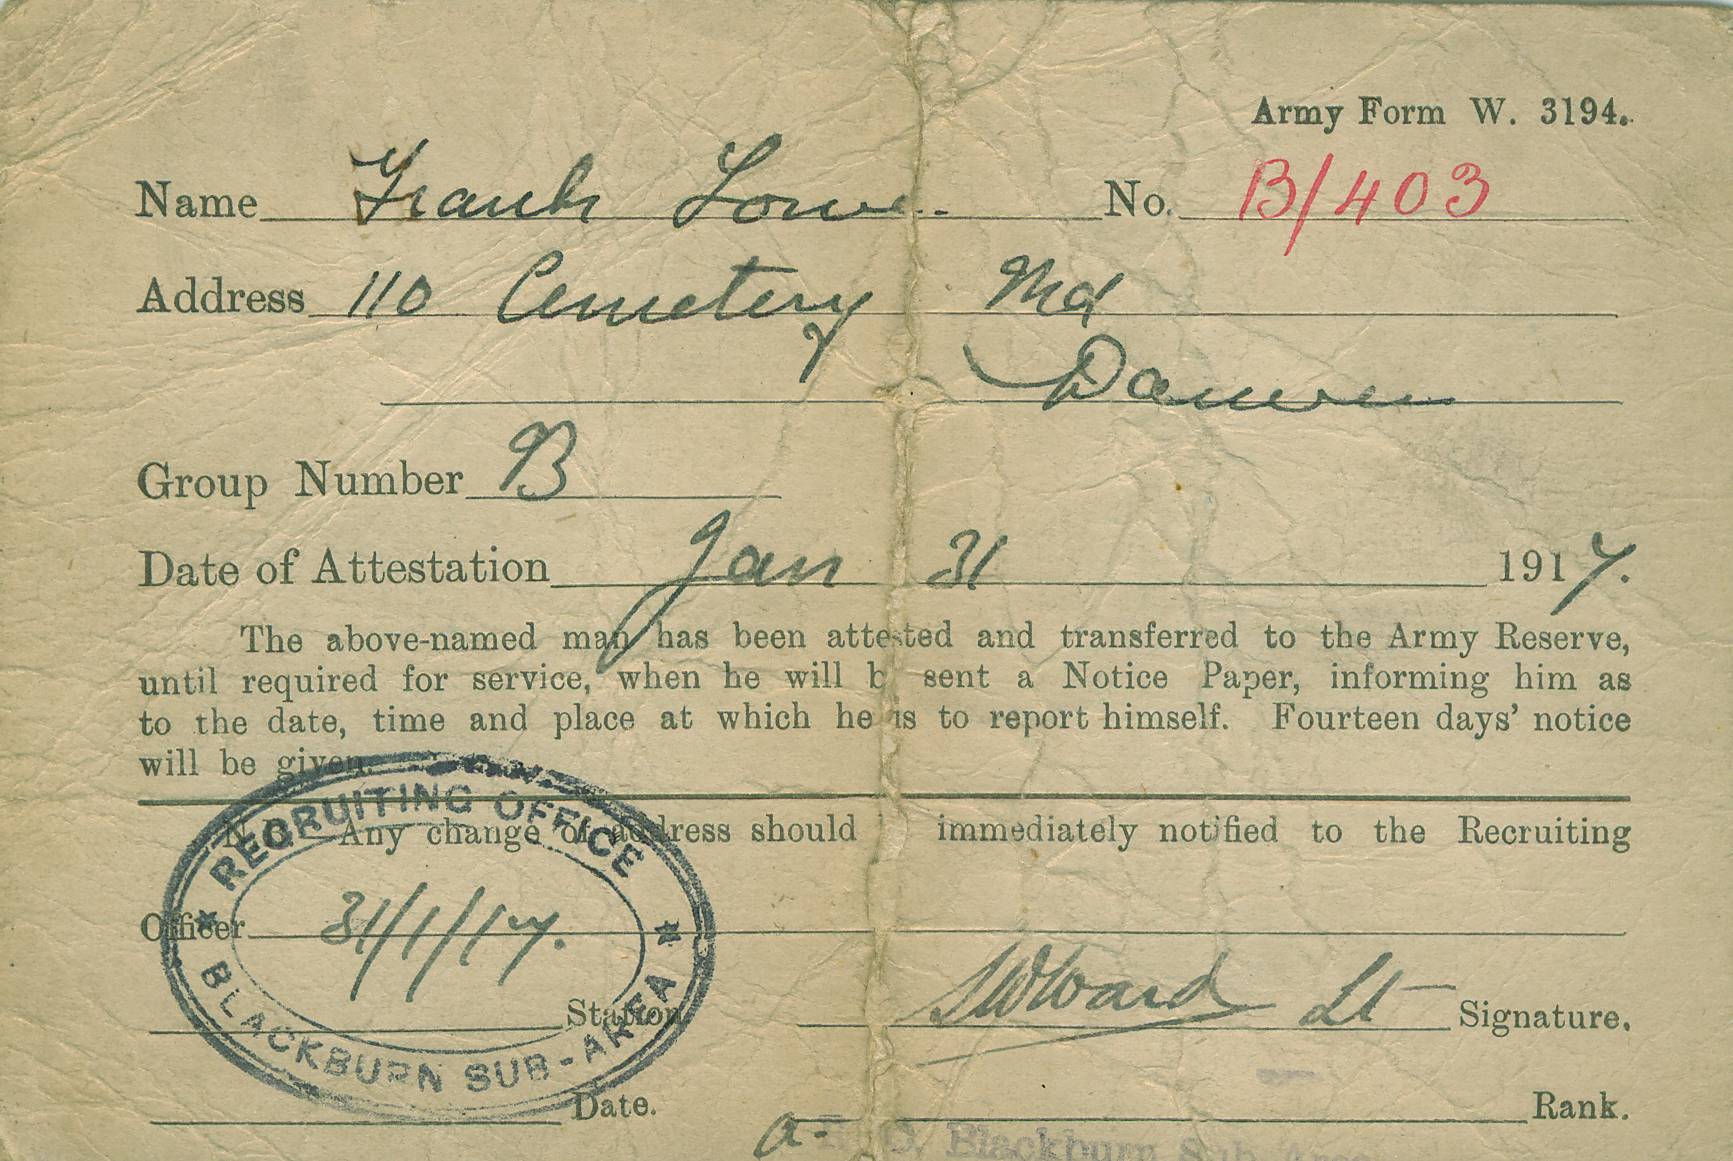 Army Form W. 3194.
Name Frank Lowe. No. B/403
Address 110 Cemetery Rd
Darwen
Group Number B
Date of Attestation Jan 31 1917.
The above-named man has been attested and transferred to the Army Reserve,
until required for service, when he will b sent a Notice Paper, informing him as
to the date, time and place at which he is to report himself. Fourteen days' notice
will be given.
N.B. Any change of address should immediately notified to the Recruiting
Officer
RECRUITING OFFICE
31/1/17.
BLACKBURN SUB-AREA
Station
Ward Lt Signature.
Date.
Rank.
a. R. O. Blackburn Sub Area